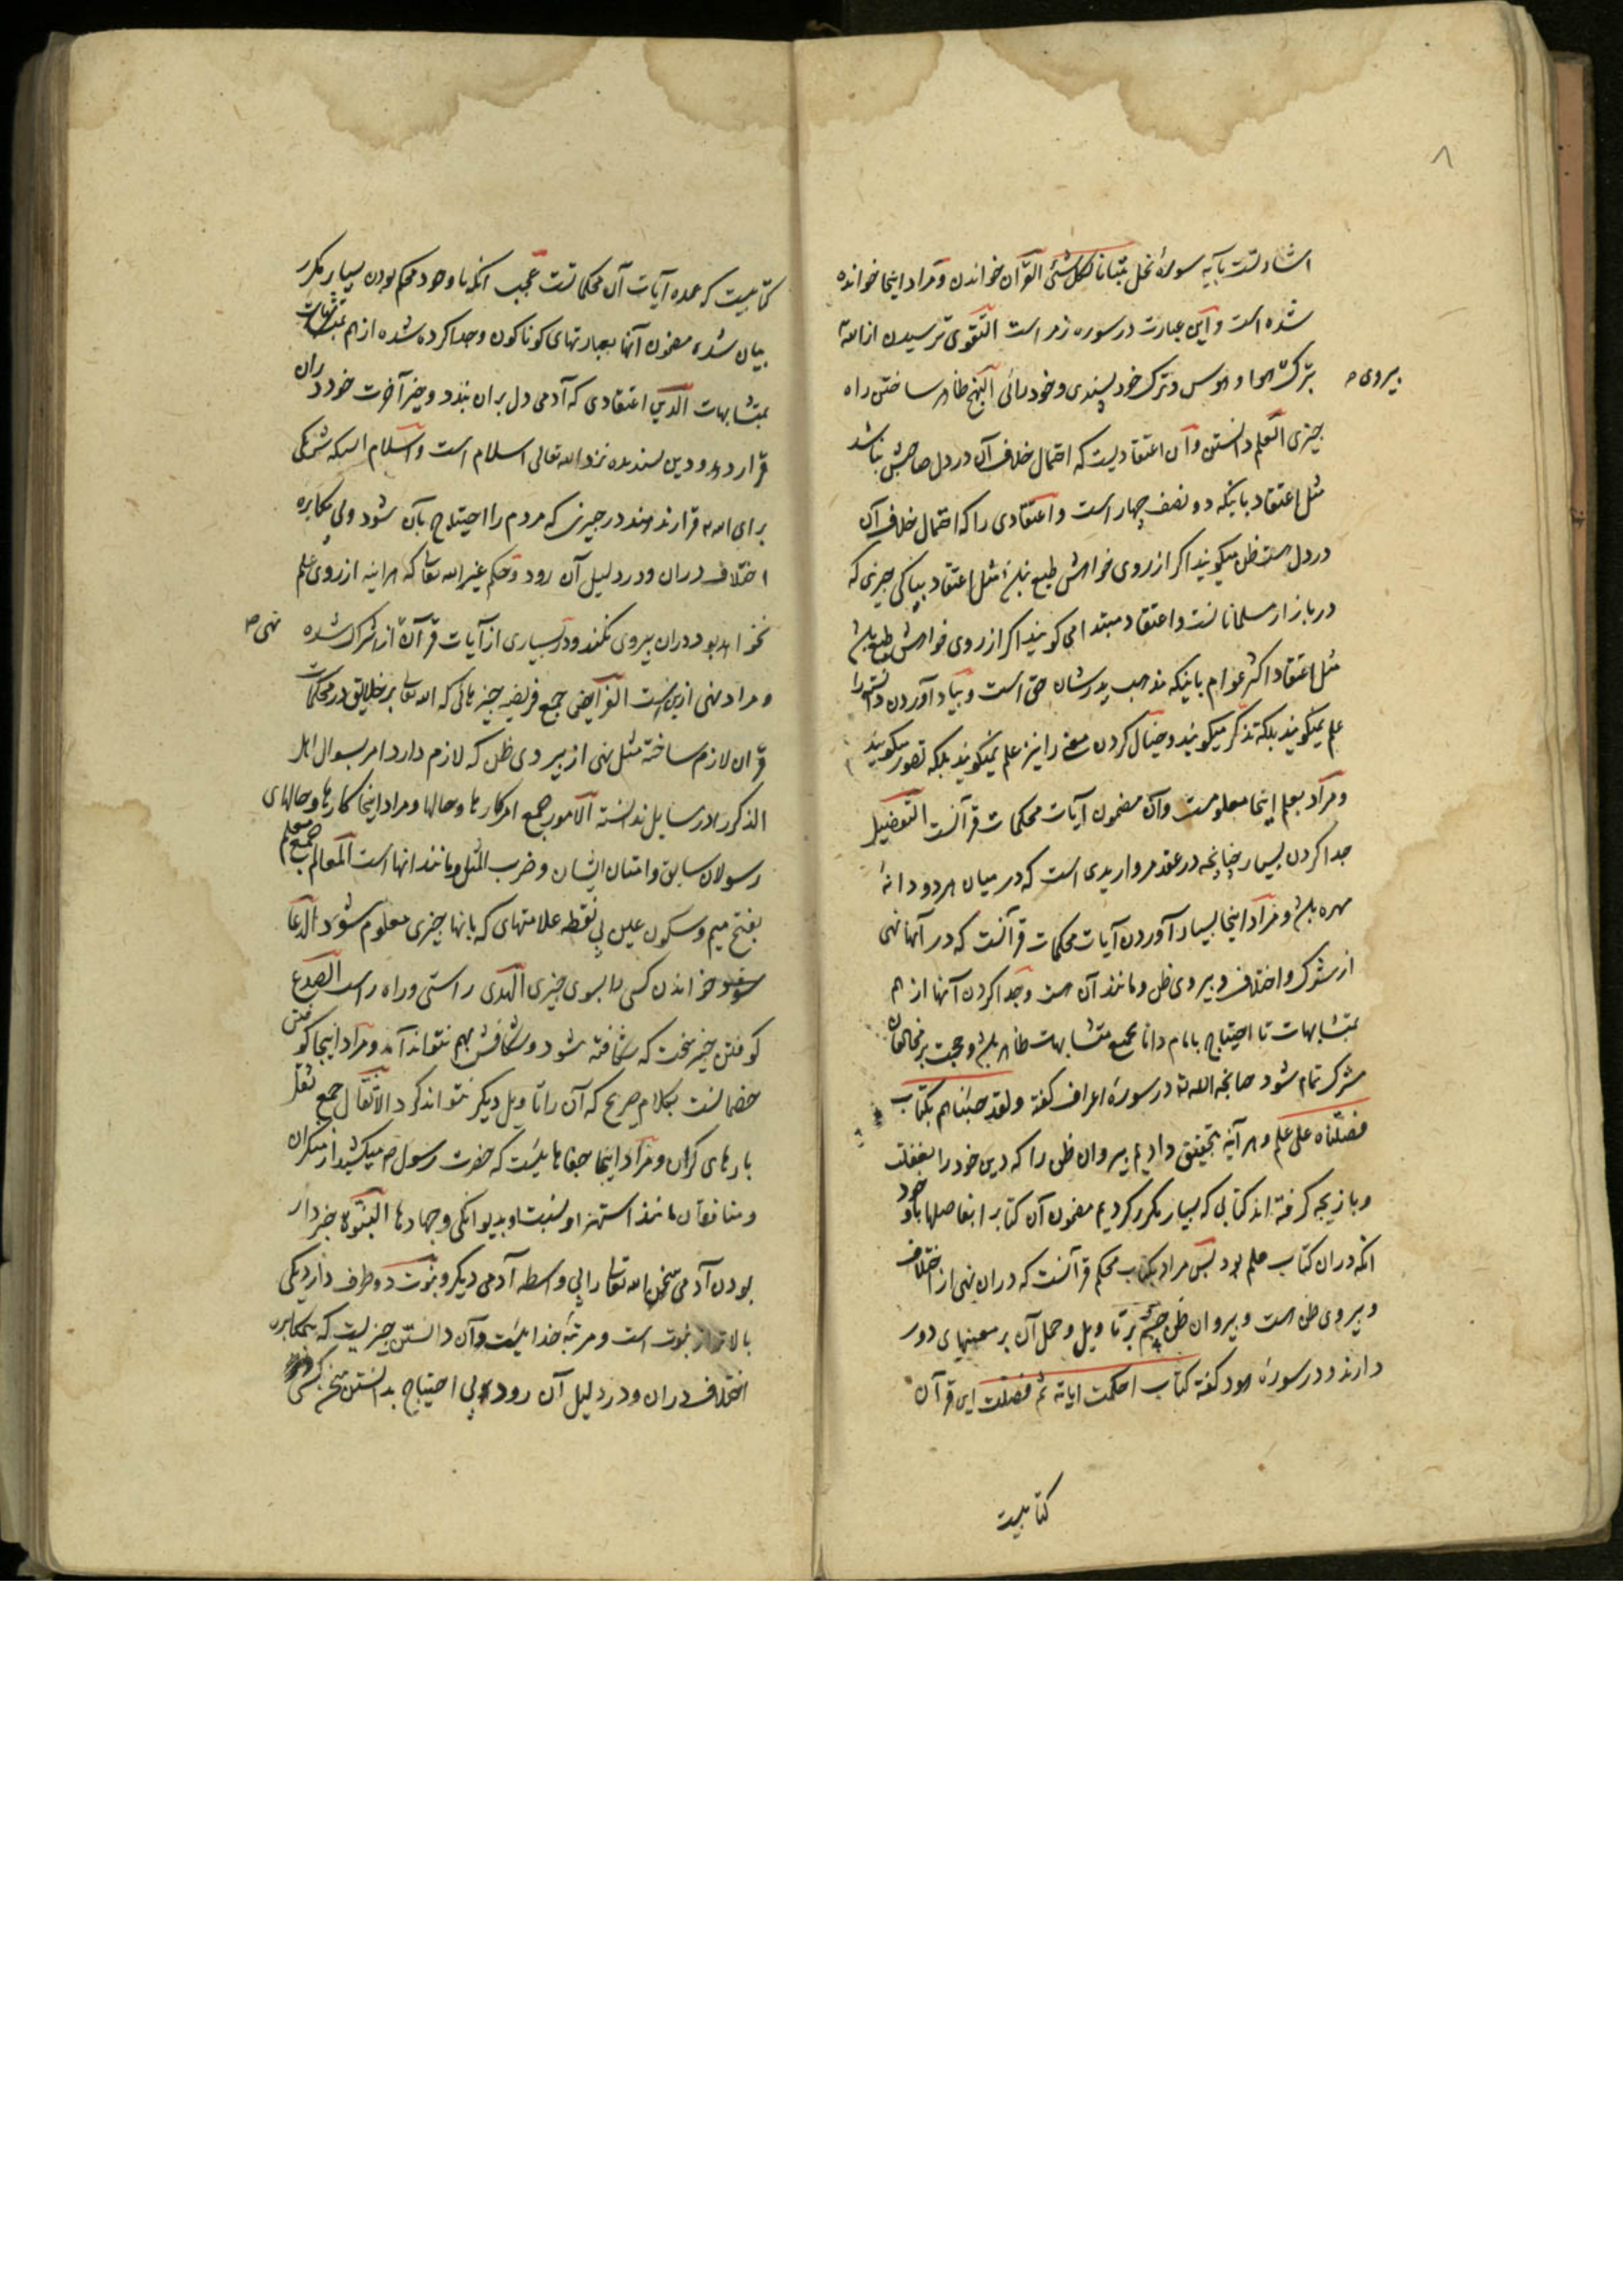 ۸
اشارتست بآیه سورهٔ نحل تبیانا لکل شیٔ القرآن خواندن و مراد اینجا خوانده
شده است و این عبارت در سوره زمر است التقوی ترسیدن از الله
بترک هوا و هوس و ترک خودپسندی و خودرائی النهج ظاهر ساختن راه
پیروی
چیزی العلم دانستن و آن اعتقادیست که احتمال خلاف آن در دل صاحبش نباشد
مثل اعتقاد باینکه دو نصف چهار است و اعتقادی را که احتمال خلاف آن
در دل هست ظن میگویند اگر از روی خواهش طبع نباشد مثل اعتقاد بپاکی چیزی که
در بازار مسلمانانست و اعتقاد مبتدا می گویند اگر از روی خواهش طبع باشد
مثل اعتقاد اکثر عوام باینکه مذهب پدرشان حق است و بیاد آوردن دانسته را
علم نمیگویند بلکه تذکر میگویند و خیال کردن معنی را نیز علم نمیگویند بلکه تصور میگویند
و مراد بعلم اینجا معلومست و آن مضمون آیات محکمات قرآنست التفضیل
جدا کردن بسیار چنانچه در عقد مرواریدی است که در میان هر دو دانهٔ
مهره باشد و مراد اینجا بسیار آوردن آیات محکمات قرآنست که در آنها نهی
از شرک و اختلاف و پیروی ظن و مانند آن هست و جدا کردن آنها از هم
بمتشابهات تا احتیاج بامام دانا بجمیع متشابهات ظاهر باشد و حجت بر مخالفان
شرک تمام شود چنانچه الله تعالی در سورهٔ اعراف گفته ولقد جئناهم بکتاب
فصلناه علی علم و هر آینه بتحقیق دادیم پیروان ظن را که دین خود را بغفلت
و بازیچه گرفته اند کتابی که بسیار مکرر کردیم مضمون آن کتاب را بفاصلها با وجود
آنکه در آن کتاب علم بود پس مراد بکتاب محکم قرآنست که در آن نهی از اختلاف
و پیروی ظن هست و پیروان ظن چشم بر تاویل و حمل آن بر معنیهای دور
دارند و در سورهٔ هود گفته کتاب احکمت ایاته ثم فصلت این قرآن
کتابیست
کتابیست که عمده آیات آن محکماتست عجب آنکه با وجود محکم بودن بسیار مکرر
بیان شده مضمون آنها بعبارتهای کوناکون و جدا کرده شده از هم بمتشابهات
بمتشابهات الدین اعتقادی که آدمی دل بر آن بندد و خیر آخرت خود در آن
قرار دهد و دین پسندیده نزد الله تعالی اسلام است و اسلام اینکه شریکی
برای الله قرار ندهند در چیزی که مردم را احتیاج بآن شود و بی مکابره
اختلاف در آن و در دلیل آن رود و حکم غیر الله تعالی که هر اینه از روی علم
نخواهد بود در آن پیروی نکنند و در بسیاری از آیات قرآن از شرک شده
نهی
و مراد نهی ازینست الفرایض جمع فریضه چیزهائی که الله تعالی بر خلایق در محکمات
قرآن لازم ساخته مثل نهی از پیروی ظن که لازم دارد امر بسوال اهل
الذکر را در مسایل ندانسته الامور جمع امر کارها و حالها و مراد اینجا کارها و حالهای
رسولان سابق و امتان ایشان و ضرب المثل و مانند آنها است المعالم جمع معلم
بفتح میم و سکون عین بی نقطه علامتهای که بآنها چیزی معلوم شود الدعا
خواندن کسی را بسوی چیزی الهدی راستی و راه راست الصدع
کوفتن چیز سخت که شکافته شود و شکافش بهم نتواند آمد و مراد اینجا کوفتن
خصمانست بکلام صریح که آن را تاویل دیگر نتواند کرد الاثقال جمع ثقل
بارهای گران و مراد اینجا جفاهائیست که حضرت رسول ص میکشید از منکران
و منافقان مانند استهزا و نسبت او بدیوانگی و جهادها النبوة خبردار
بودن آدمی سخن الله تعالی را بی واسطه آدمی دیگر و نبوت دو طرف دارد یکی
بالاتر از نبوت است و مرتبه خدائیست و آن دانستن چیزیست که بمکابره
اختلاف در آن و در دلیل آن رود بی احتیاج بدانستن سخن کسی